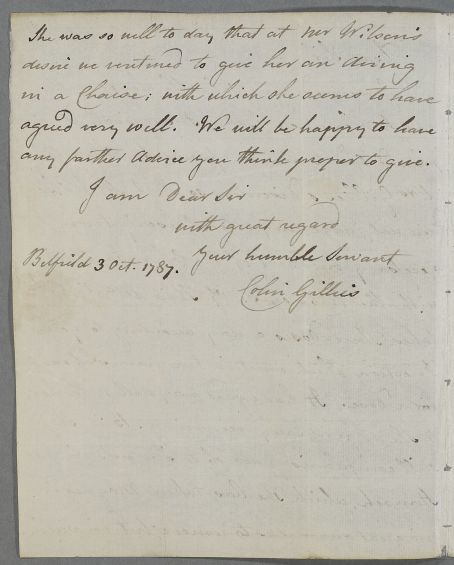 She was so well to day that at Mr Wilson's
desire we ventured to give her an airing
in a Chaise; with which she seems to have
agreed very well. We will be happy to have
any farther Advice you think proper to give.
I am Dear Sir
with great regard
your humble Servant
Belfield 3 Oct. 1787.
Colin Gillies